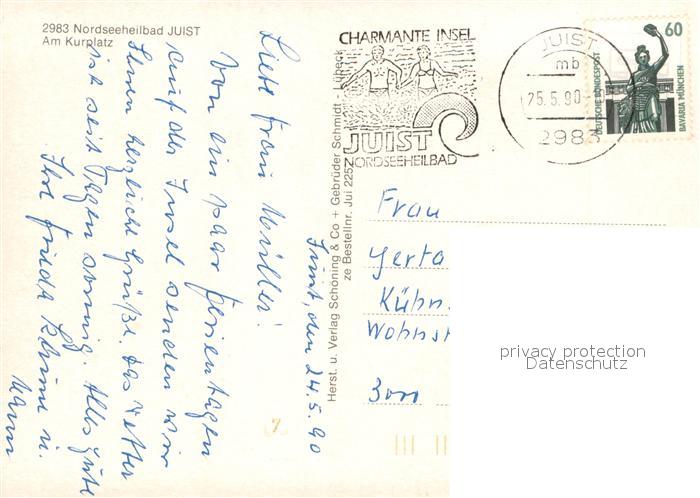 2983 Nordseeheilbad JUIST
Am Kurplatz
CHARMANTE INSEL
JUIST
NORDSEEHEILBAD
JUIST
mb
25.5.90
2983
60
DEUTSCHE BUNDESPOST
BAVARIA MÜNCHEN
Herst. u. Verlag Schöning & Co + Gebrüder Schmidt - Lübeck
ze Bestellnr. Jui 2257
Juist, den 24.5.90
Liebe Frau Müller!
Von ein paar Ferientagen
auf der Insel senden wir
Ihnen herzliche Grüße. Das Wetter
ist seit Tagen sonnig. Alles Gute
Ihre Frieda u.
Mann
Frau
Gerta
Kühn
Wohnst
privacy protection
Datenschutz